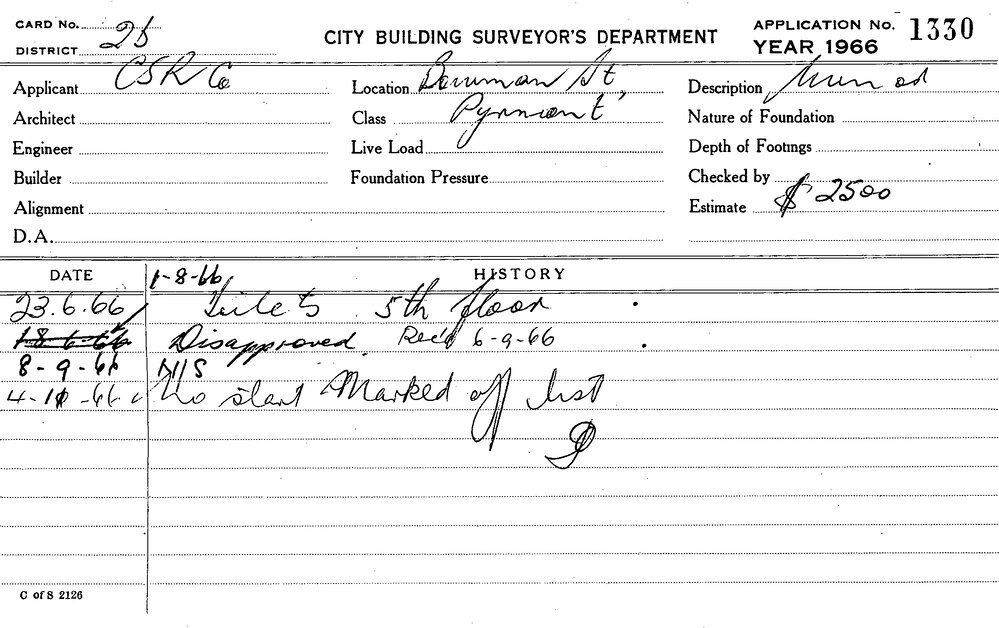 CARD No.
DISTRICT 2b
CITY BUILDING SURVEYOR'S DEPARTMENT
APPLICATION No. 1330
YEAR 1966
Applicant CSR Co
Location Bowman St,
Description Minor ad
Architect
Class Pyrmont
Nature of Foundation
Engineer
Live Load
Depth of Footings
Builder
Foundation Pressure
Checked by
Alignment
Estimate $ 2500
D.A.
DATE
1-8-66
HISTORY
23.6.66 Toilets 5th floor
18-6-66 Disapproved Rec'd 6-9-66
8-9-66 N/S
4-10-66 No start Marked off list
C of S 2126